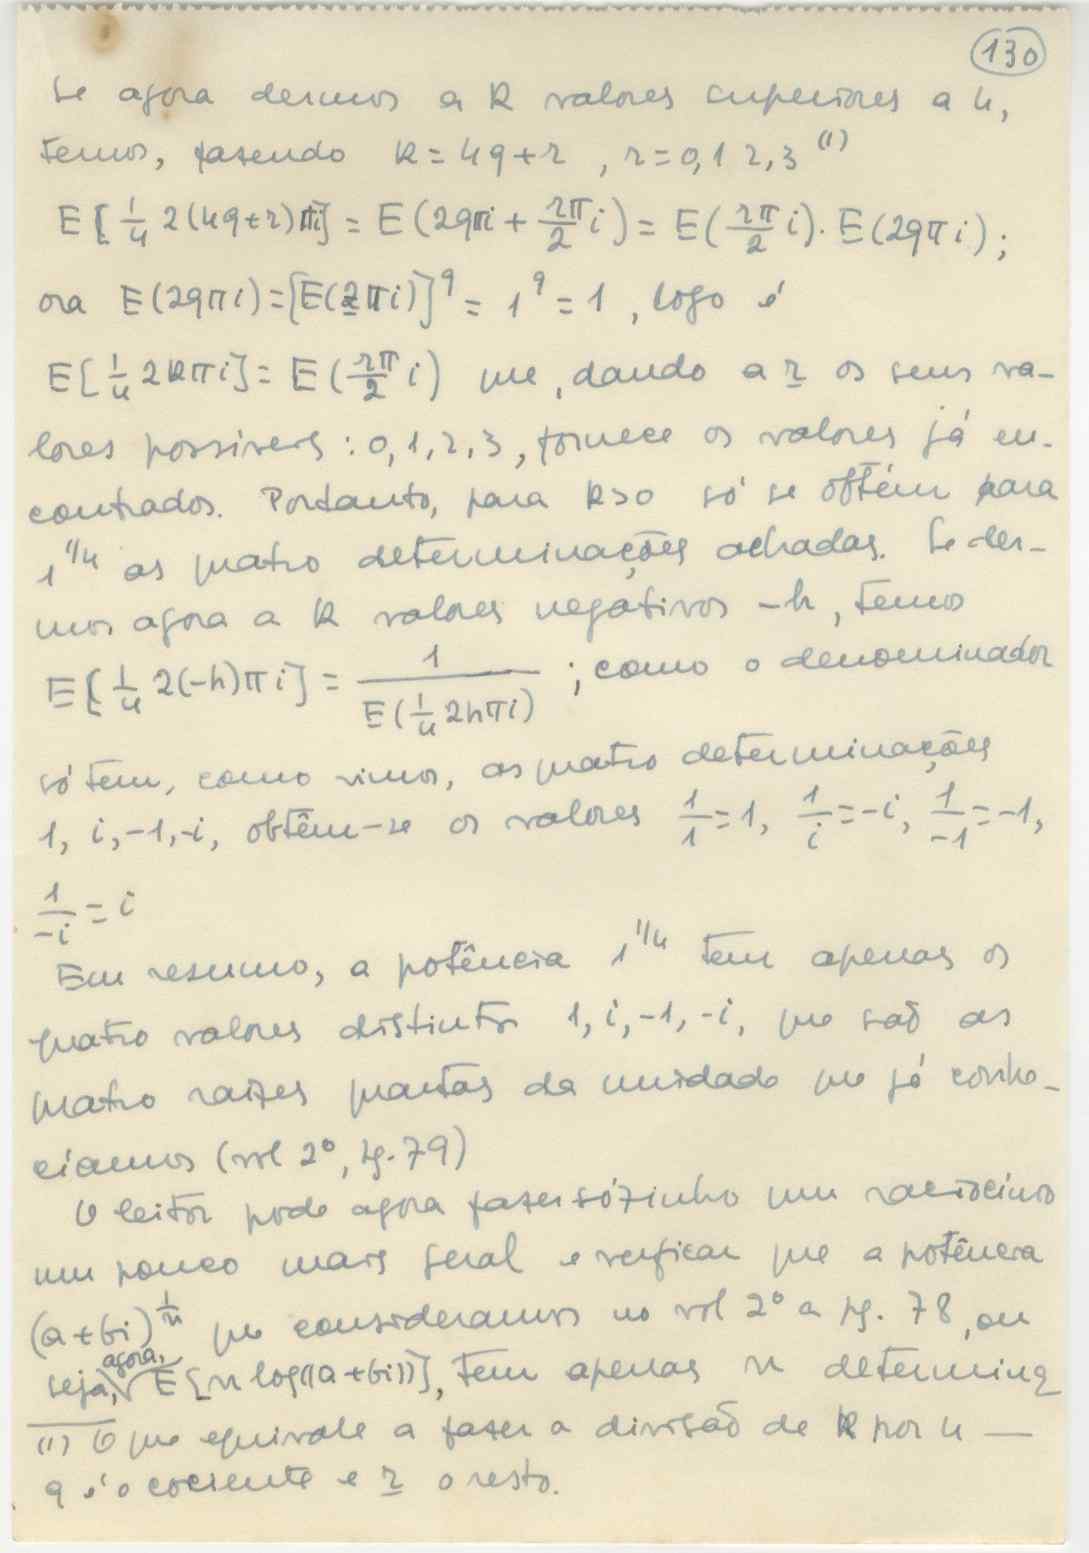 130
Se agora dermos a k valores superiores a 4,
temos, fazendo k = 4q + r , r = 0,1 2,3 (1)
E[1/4 2(4q+r)πi] = E(2qπi + rπ/2 i) = E(rπ/2 i). E(2qπi);
ora E(2qπi) = [E(2πi)]^q = 1^q = 1 , logo é
E[1/4 2kπi] = E(rπ/2 i) que, dando a r os seus va-
lores possíveis : 0,1,2,3, fornece os valores já en-
contrados. Portanto, para k>0 só se obtém para
1^1/4 as quatro determinações achadas. Se der-
mos agora a k valores negativos -h, temos
E[1/4 2(-h)πi] = 1/E(1/4 2hπi) ; como o denominador
só tem, como vimos, as quatro determinações
1, i, -1, -i, obtêm-se os valores 1/1 = 1, 1/i = -i, 1/-1 = -1,
1/-i = i
Em resumo, a potência 1^1/4 tem apenas os
quatro valores distintos 1, i, -1, -i, que são as
quatro raízes quartas da unidade que já conhe-
cíamos (vol 2º, pg. 79)
O leitor pode agora fazer sózinho um raciocínio
um pouco mais geral e verificar que a potência
(a+bi)^1/n que consideramos no vol 2º a pg. 78, ou
seja, agora, E[n log((a+bi))], tem apenas n determina
(1) O que equivale a fazer a divisão de k por 4 —
q é o cociente e r o resto.